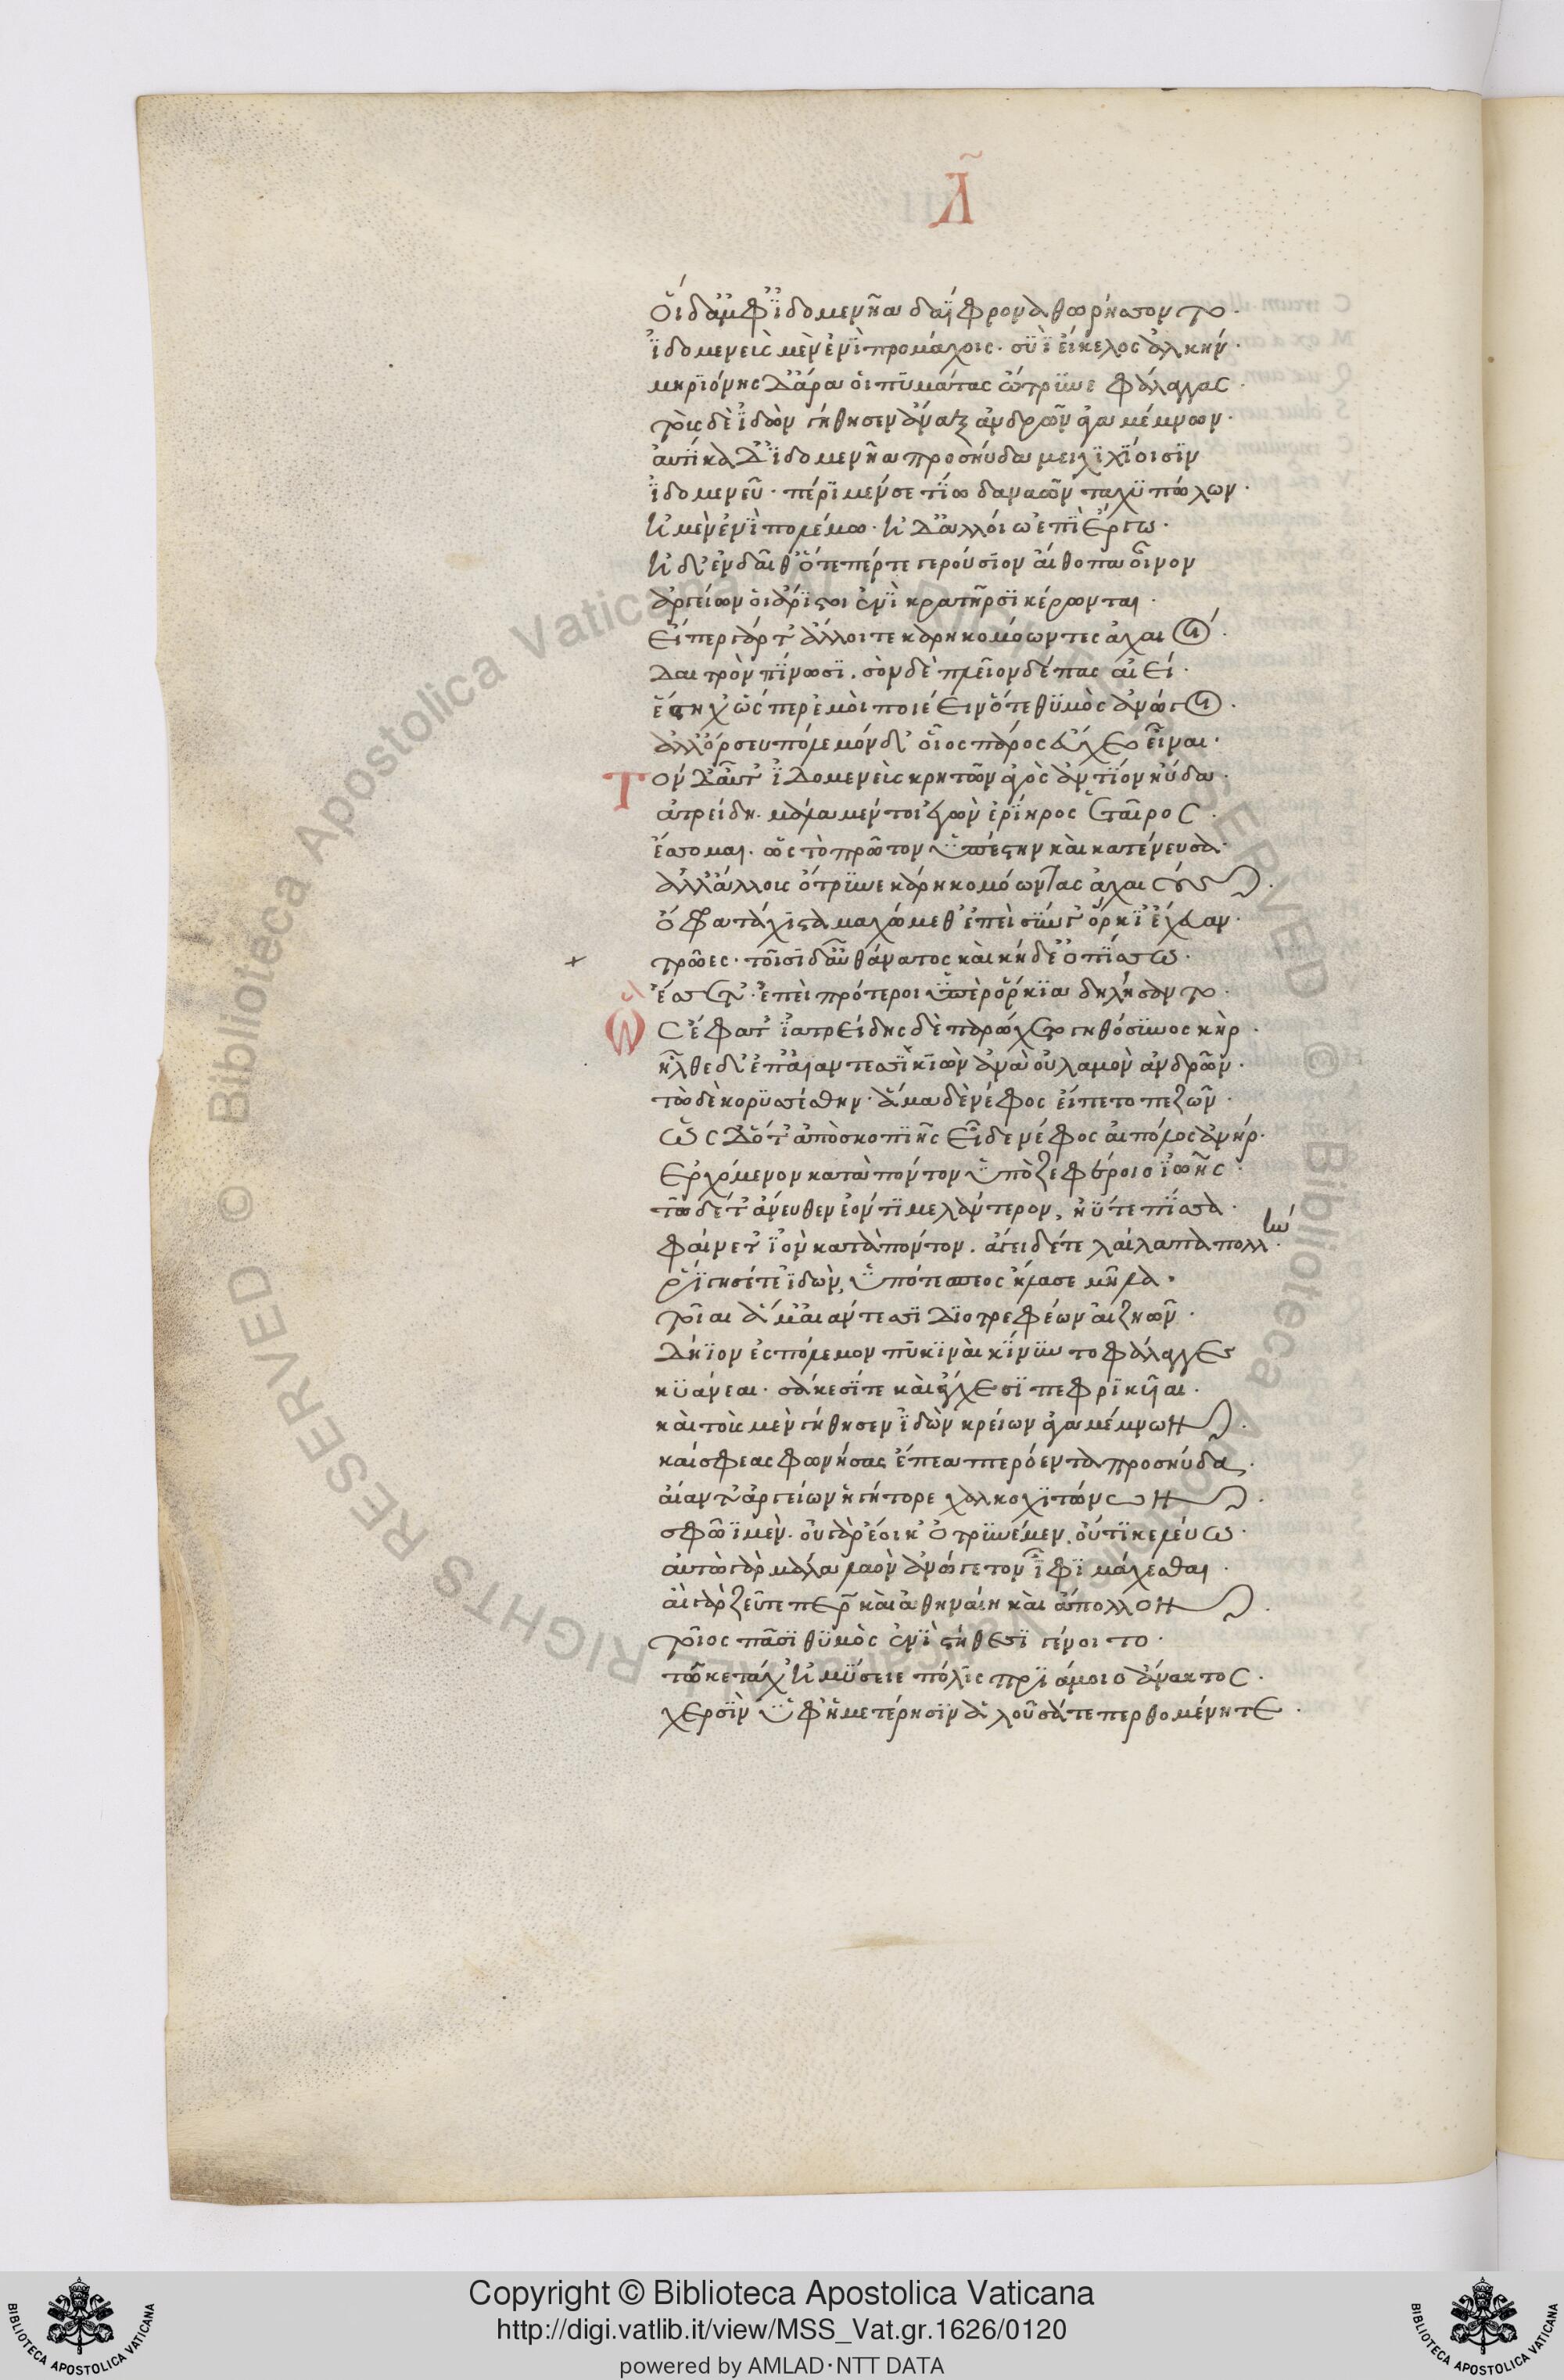 ΙΛ
Οἱ δ' ἀμφ' ἰδομενῆα δαΐφρονα θωρήσσοντο.
ἰδομενεὺς μὲν ἐνὶ προμάχοις. συῒ εἴκελος ἀλκήν.
μηριόνης δ' ἄρα οἱ πυμάτας ὤτρυνε φάλαγγας.
τοὺς δὲ ἰδὼν γήθησεν ἄναξ ἀνδρῶν ἀγαμέμνων.
αὐτίκα δ' ἰδομενῆα προσηύδα μειλιχίοισιν
ἰδομενεῦ. πέρι μέν σε τίω δαναῶν ταχυπώλων.
ἠ μὲν ἐνὶ πολέμω. ἠ δ' ἀλλοίω ἐπὶ ἔργω.
ἠ δ' ἐν δαῖθ' ὅτε πέρ τε γερούσιον αἴθοπα οἶνον
ἀργείων οἱ ἄριστοι ἐνὶ κρατῆρσι κέρωνται.
Εἴπερ γάρ τ' ἄλλοι τε καρηκομόωντες ἀχαιοί.
δαιτρὸν πίνωσι. σὸν δὲ πλεῖον δέπας αἰεί.
ἕστηχ' ὥς περ ἐμοὶ πιέειν ὅτε θυμὸς ἀνώγοι.
ἀλλ' ὄρσευ πόλεμόν δ' οἷος πάρος εὔχεο εἶναι.
Τὸν δ' αὖτ' ἰδομενεὺς κρητῶν ἀγὸς ἀντίον ηὔδα.
ἀτρείδη. μάλα μέν τοι ἐγὼν ἐρίηρος ἑταῖρος.
ἔσσομαι. ὡς τὸ πρῶτον ὑπέστην καὶ κατένευσα.
ἀλλ' ἄλλους ὄτρυνε καρηκομόωντας ἀχαιούς.
ὄφρα τάχιστα μαχώμεθ' ἐπεὶ σύν γ' ὅρκι' ἔχευαν.
τρῶες. τοῖσι δ' αὖ θάνατος καὶ κήδε' ὀπίσσω.
ἔσσετ'. ἐπεὶ πρότεροι ὑπὲρ ὅρκια δηλήσαντο.
Ὣς ἔφατ' ἀτρείδης δὲ παρώχετο γηθόσυνος κῆρ.
ἦλθε δ' ἐπ' αἰάντεσσι κιὼν ἀνὰ οὐλαμὸν ἀνδρῶν.
τὼ δὲ κορυσσέσθην. ἅμα δὲ νέφος εἵπετο πεζῶν.
Ὡς δ' ὅτ' ἀπὸ σκοπιῆς εἶδε νέφος αἰπόλος ἀνήρ.
ἐρχόμενον κατὰ πόντον ὑπὸ ζεφύροιο ἰωῆς.
τῶ δέ τ' ἄνευθεν ἐόντι μελάντερον, ἠύτε πίσσα.
φαίνετ' ἰὸν κατὰ πόντον. ἄγει δέ τε λαίλαπα πολλήν.
ῥίγησέ τε ἰδὼν, ὑπό τε σπέος ἤλασε μῆλα.
τοῖαι ἅμ' αἰάντεσσι διοτρεφέων αἰζηῶν.
δήιον ἐς πόλεμον πυκιναὶ κίνυντο φάλαγγες
κυάνεαι. σάκεσί τε καὶ ἔγχεσι πεφρικυῖαι.
καὶ τοὺς μὲν γήθησεν ἰδὼν κρείων ἀγαμέμνων.
καί σφεας φωνήσας ἔπεα πτερόεντα προσηύδα.
αἴαντ' ἀργείων ἡγήτορε χαλκοχιτώνων.
σφῶϊ μὲν. οὐ γὰρ ἔοικ' ὀτρυνέμεν. οὔτι κελεύω.
αὐτὼ γὰρ μάλα λαὸν ἀνώγετον ἶφι μάχεσθαι.
αἲ γὰρ ζεῦ τε πὲρ καὶ ἀθηναίη καὶ ἄπολλον.
τοῖος πᾶσι θυμὸς ἐνὶ στήθεσι γένοιτο.
τῶ κε τάχ' ἠμύσειε πόλις πριάμοιο ἄνακτος.
χερσὶν ὑφ' ἡμετέρησιν ἁλοῦσά τε περθομένη τε.
Copyright © Biblioteca Apostolica Vaticana
http://digi.vatlib.it/view/MSS_Vat.gr.1626/0120
powered by AMLAD·NTT DATA